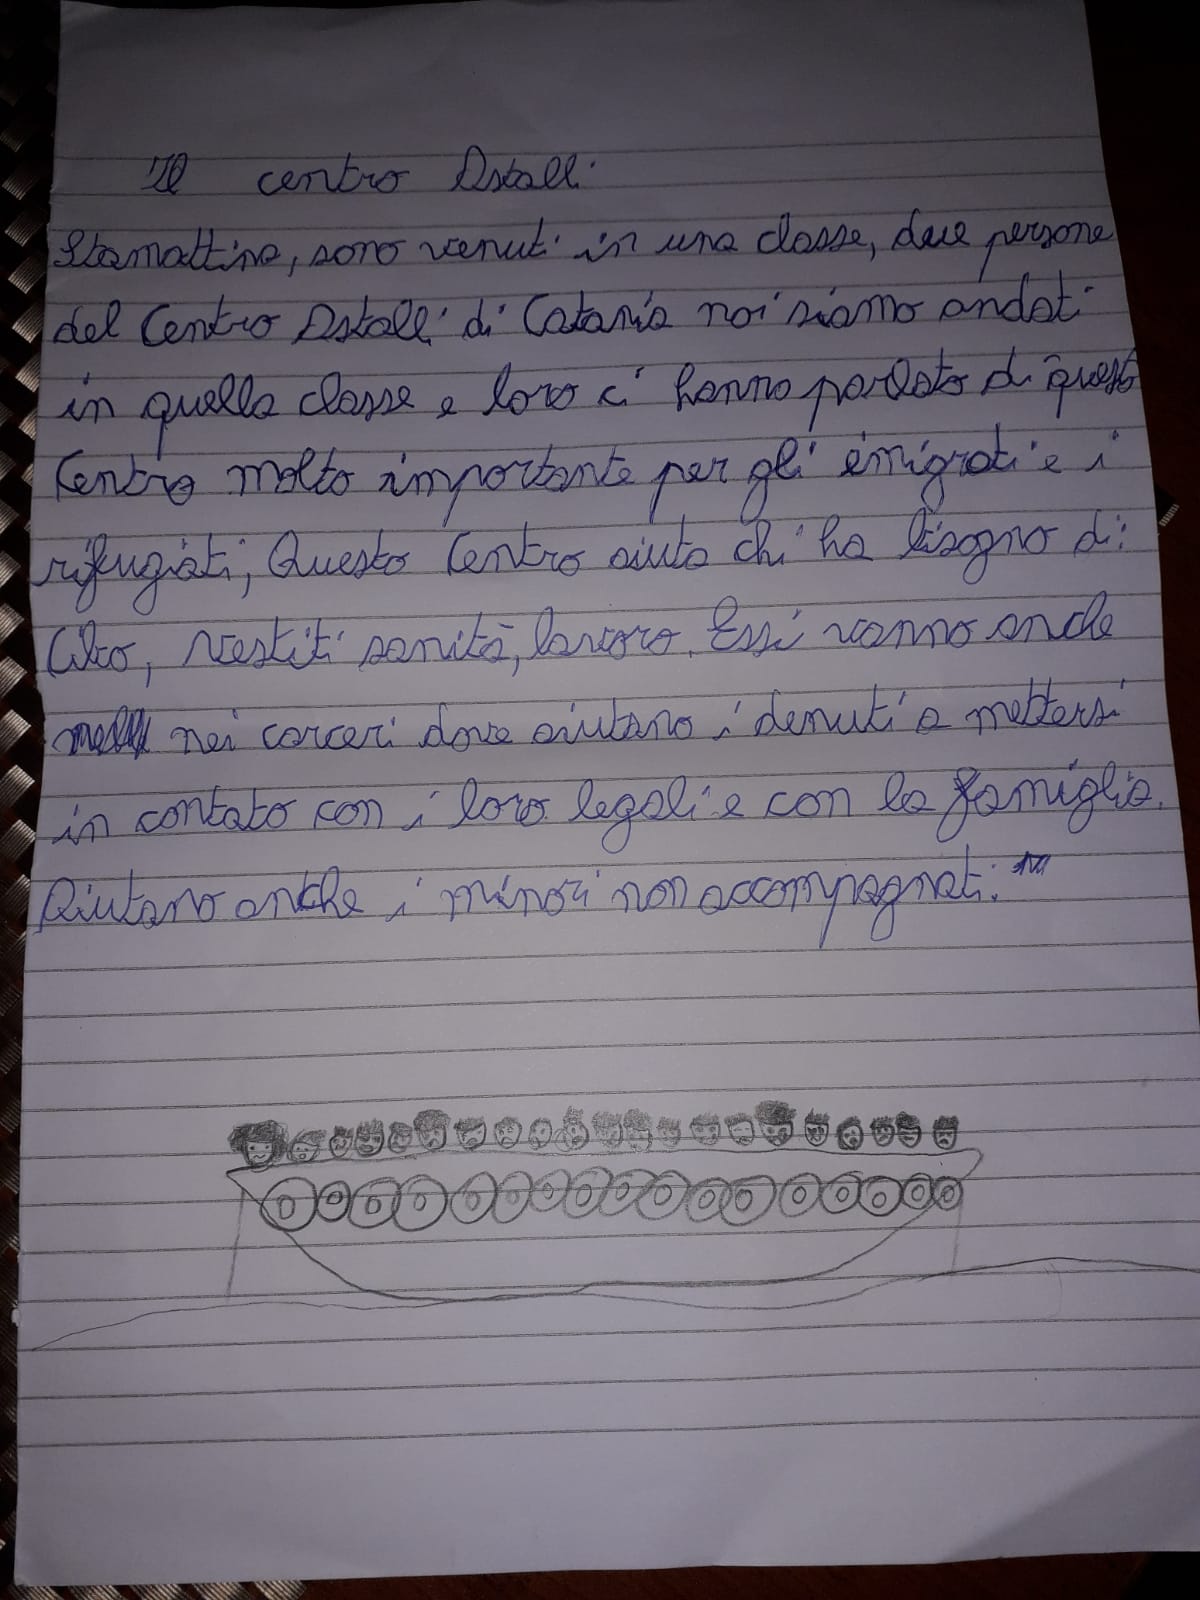 Il centro Astalli
Stamattina, sono venuti in una classe, due persone
del Centro Astalli di Catania noi siamo andati
in quella classe e loro ci hanno parlato di questo
Centro molto importante per gli emigrati e i
rifugiati, Questo Centro aiuta chi ha bisogno di:
Cibo, vestiti sanità, lavoro. Essi vanno anche
nei carceri dove aiutano i denuti a mettersi
in contato con i loro legali e con la famiglia.
Aiutano anche i minori non accompagnati.